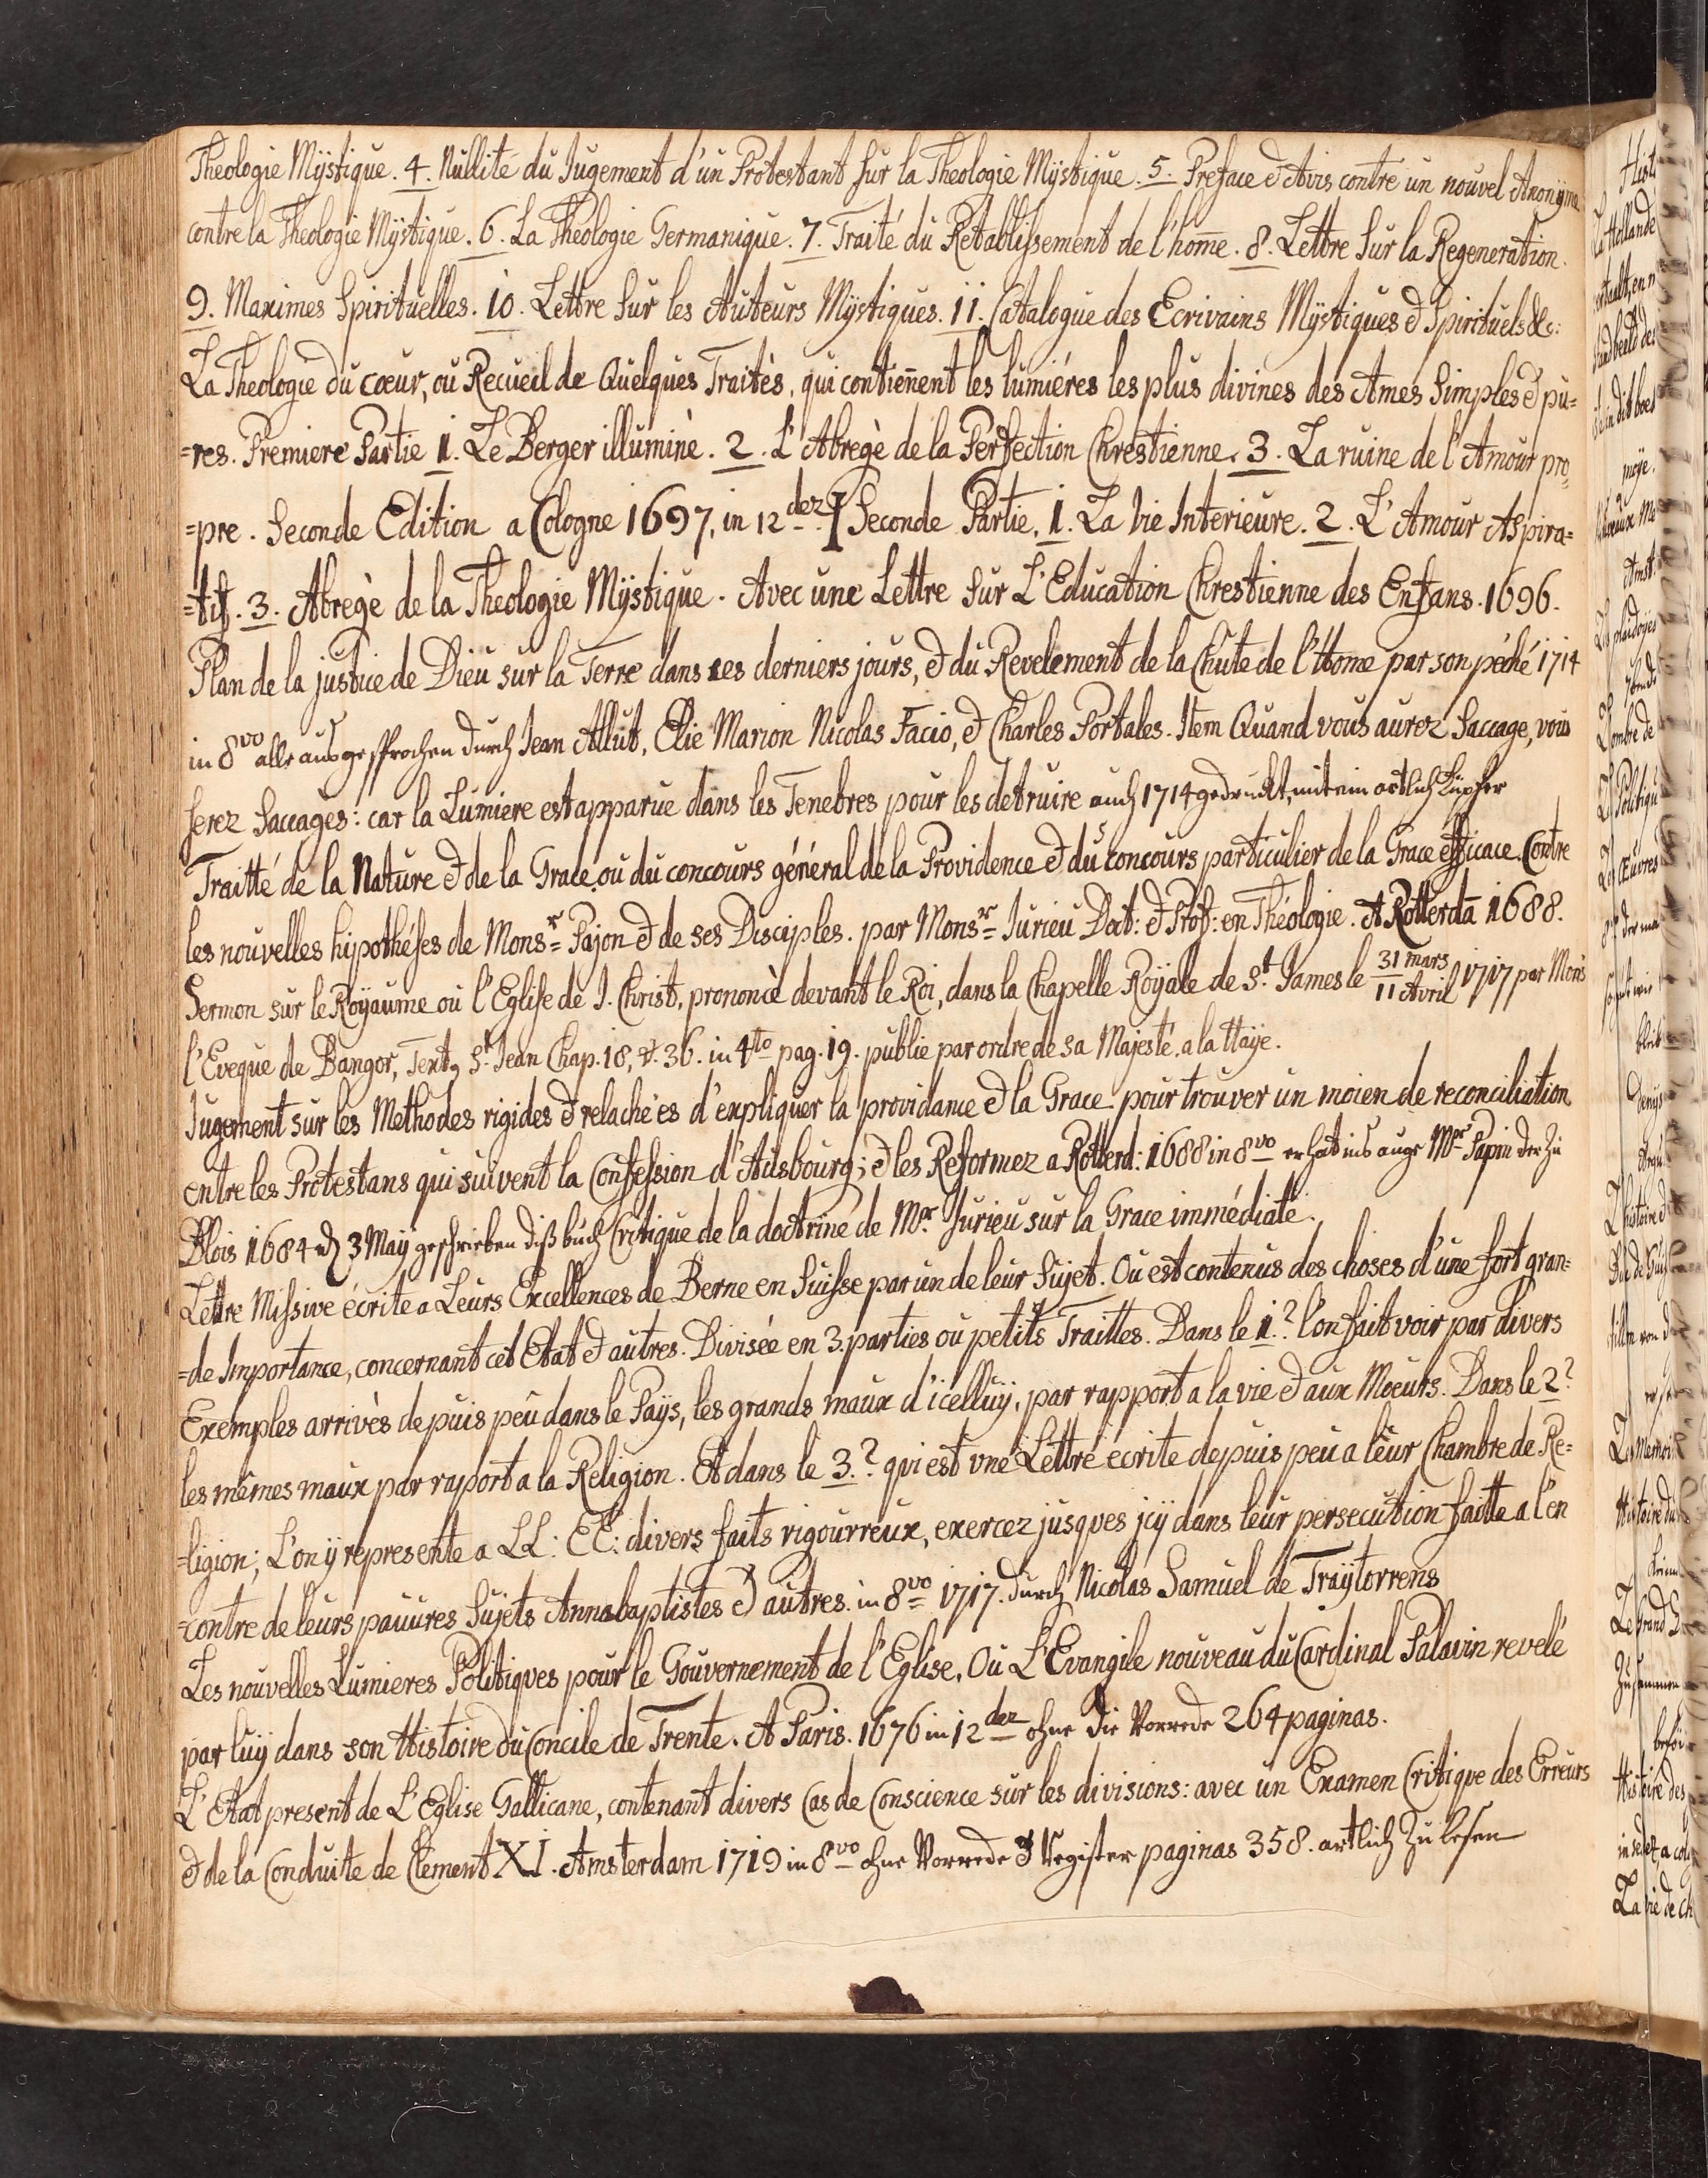 Theologie Mÿstique. 4. Nullité du Jugement d'un Protestant sur la Theologie Mÿstique. 5. Preface & Avis contre un nouvel Anonÿme
contre la Theologie Mÿstique. 6. La Theologie Germanique. 7. Traité du Retablissement de l'hom̄e. 8. Lettre sur la Regeneration.
9. Maximes Spirituelles. 10. Lettre sur les Auteurs Mÿstiques. 11. Catalogue des Ecrivains Mÿstiques & Spirituels &c:
La Theologie du cœur, ou Recueil de Quelques Traitès, qui contien̄ent les lumiéres les plus divines des Ames Simples & pu=
=res. Premiere Partie 1. Le Berger illuminè. 2. L'Abregè de la Perfection Chrestienne. 3. La ruine de l'Amour pro
=pre. Seconde Edition a Cologne 1697, in 12dez. Seconde Partie. 1. La Vie Interieure. 2. L'Amour Aspira=
=tif. 3. Abregè de la Theologie Mÿstique. Avec une Lettre sur L'Education Chrestienne des Enfans. 1696.
Plan de la justice de Dieu sur la Terre dans ces derniers jours, & du Revelement de la Chute de l'Home par son péché 1714
in 8vo alle ausgesprochen durch Jean Allut, Elie Marion Nicolas Facio, & Charles Portales. Item Quand vous aurez Saccage, vous
serez Saccagès: car la Lumiere est apparue dans les Tenebres pour les detruire auch 1714 gedruckt, mit ein artlich Kupfer
Traitté de la Nature & de la Grace, ou du concours général de la Providence & du concours particulier de la Grace efficace. Contre
les nouvelles hipothéses de Monsr Pajon & de ses Disciples. par Monsr Jurieu Doct: & Prof: en Théologie. A Rotterdā 1688.
Sermon sur le Roÿaume ou l'Eglise de J. Christ, prononcè devant le Roi, dans la Chapelle Roÿale de St. James le 31 mars / 11 Avril 1717 par Mons
l'Eveque de Bangor, Text, St. Jean Chap. 18, ℣. 36. in 4to pag. 19. publie par ordre de sa Majesté, a la Haÿe.
Jugement sur les Methodes rigides & relachées d'expliquer la providance & la Grace pour trouver un moien de reconciliation
entre les Protestans qui suivent la Confession d'Ausbourg; & les Reformez a Rotterd: 1688 in 8vo er hat ins auge Mr Papin der zu
Blois 1684 den 3 Maÿ geschrieben diß buch Critique de la doctrine de Mr Jurieu sur la Grace immédiate.
Lettre Missive écrite a Leurs Excellences de Berne en Suisse par un de leur Sujet. Ou est contenus des choses d'une fort gran=
=de Importance, concernant cet Etat & autres. Divisée en 3. parties ou petits Traittes. Dans le 1.? l'on fait voir par divers
Exemples arrivès depuis peu dans le Paÿs, les grands maux d'icelluÿ, par rapport a la vie & aux Moeurs. Dans le 2?
les mêmes maux par raport a la Religion. Et dans le 3.? qui est une Lettre ecrite depuis peu a leur Chambre de Re=
=ligion; L'on ÿ represente a LL: EE: divers faits rigourreux, exercez jusques jcÿ dans leur persecution faitte a l'en
=contre de leurs pauures Sujets Annabaptistes & autres. in 8vo 1717. durch Nicolas Samuel de Traÿtorrens
Les nouvelles Lumieres Politiques pour le Gouvernement de l'Eglise, Ou L'Evangile nouveau du Cardinal Palavin revelé
par luÿ dans son Histoire du Concile de Trente. A Paris. 1676 in 12dez ohne die Vorrede 264 paginas.
L'Etat present de L'Eglise Gallicane, contenant divers Cas de Conscience sur les divisions: avec un Examen Critique des Erreurs
& de la Conduite de Clement XI. Amsterdam 1719 in 8vo ohne Vorrede & Register paginas 358. artlich zu lesen